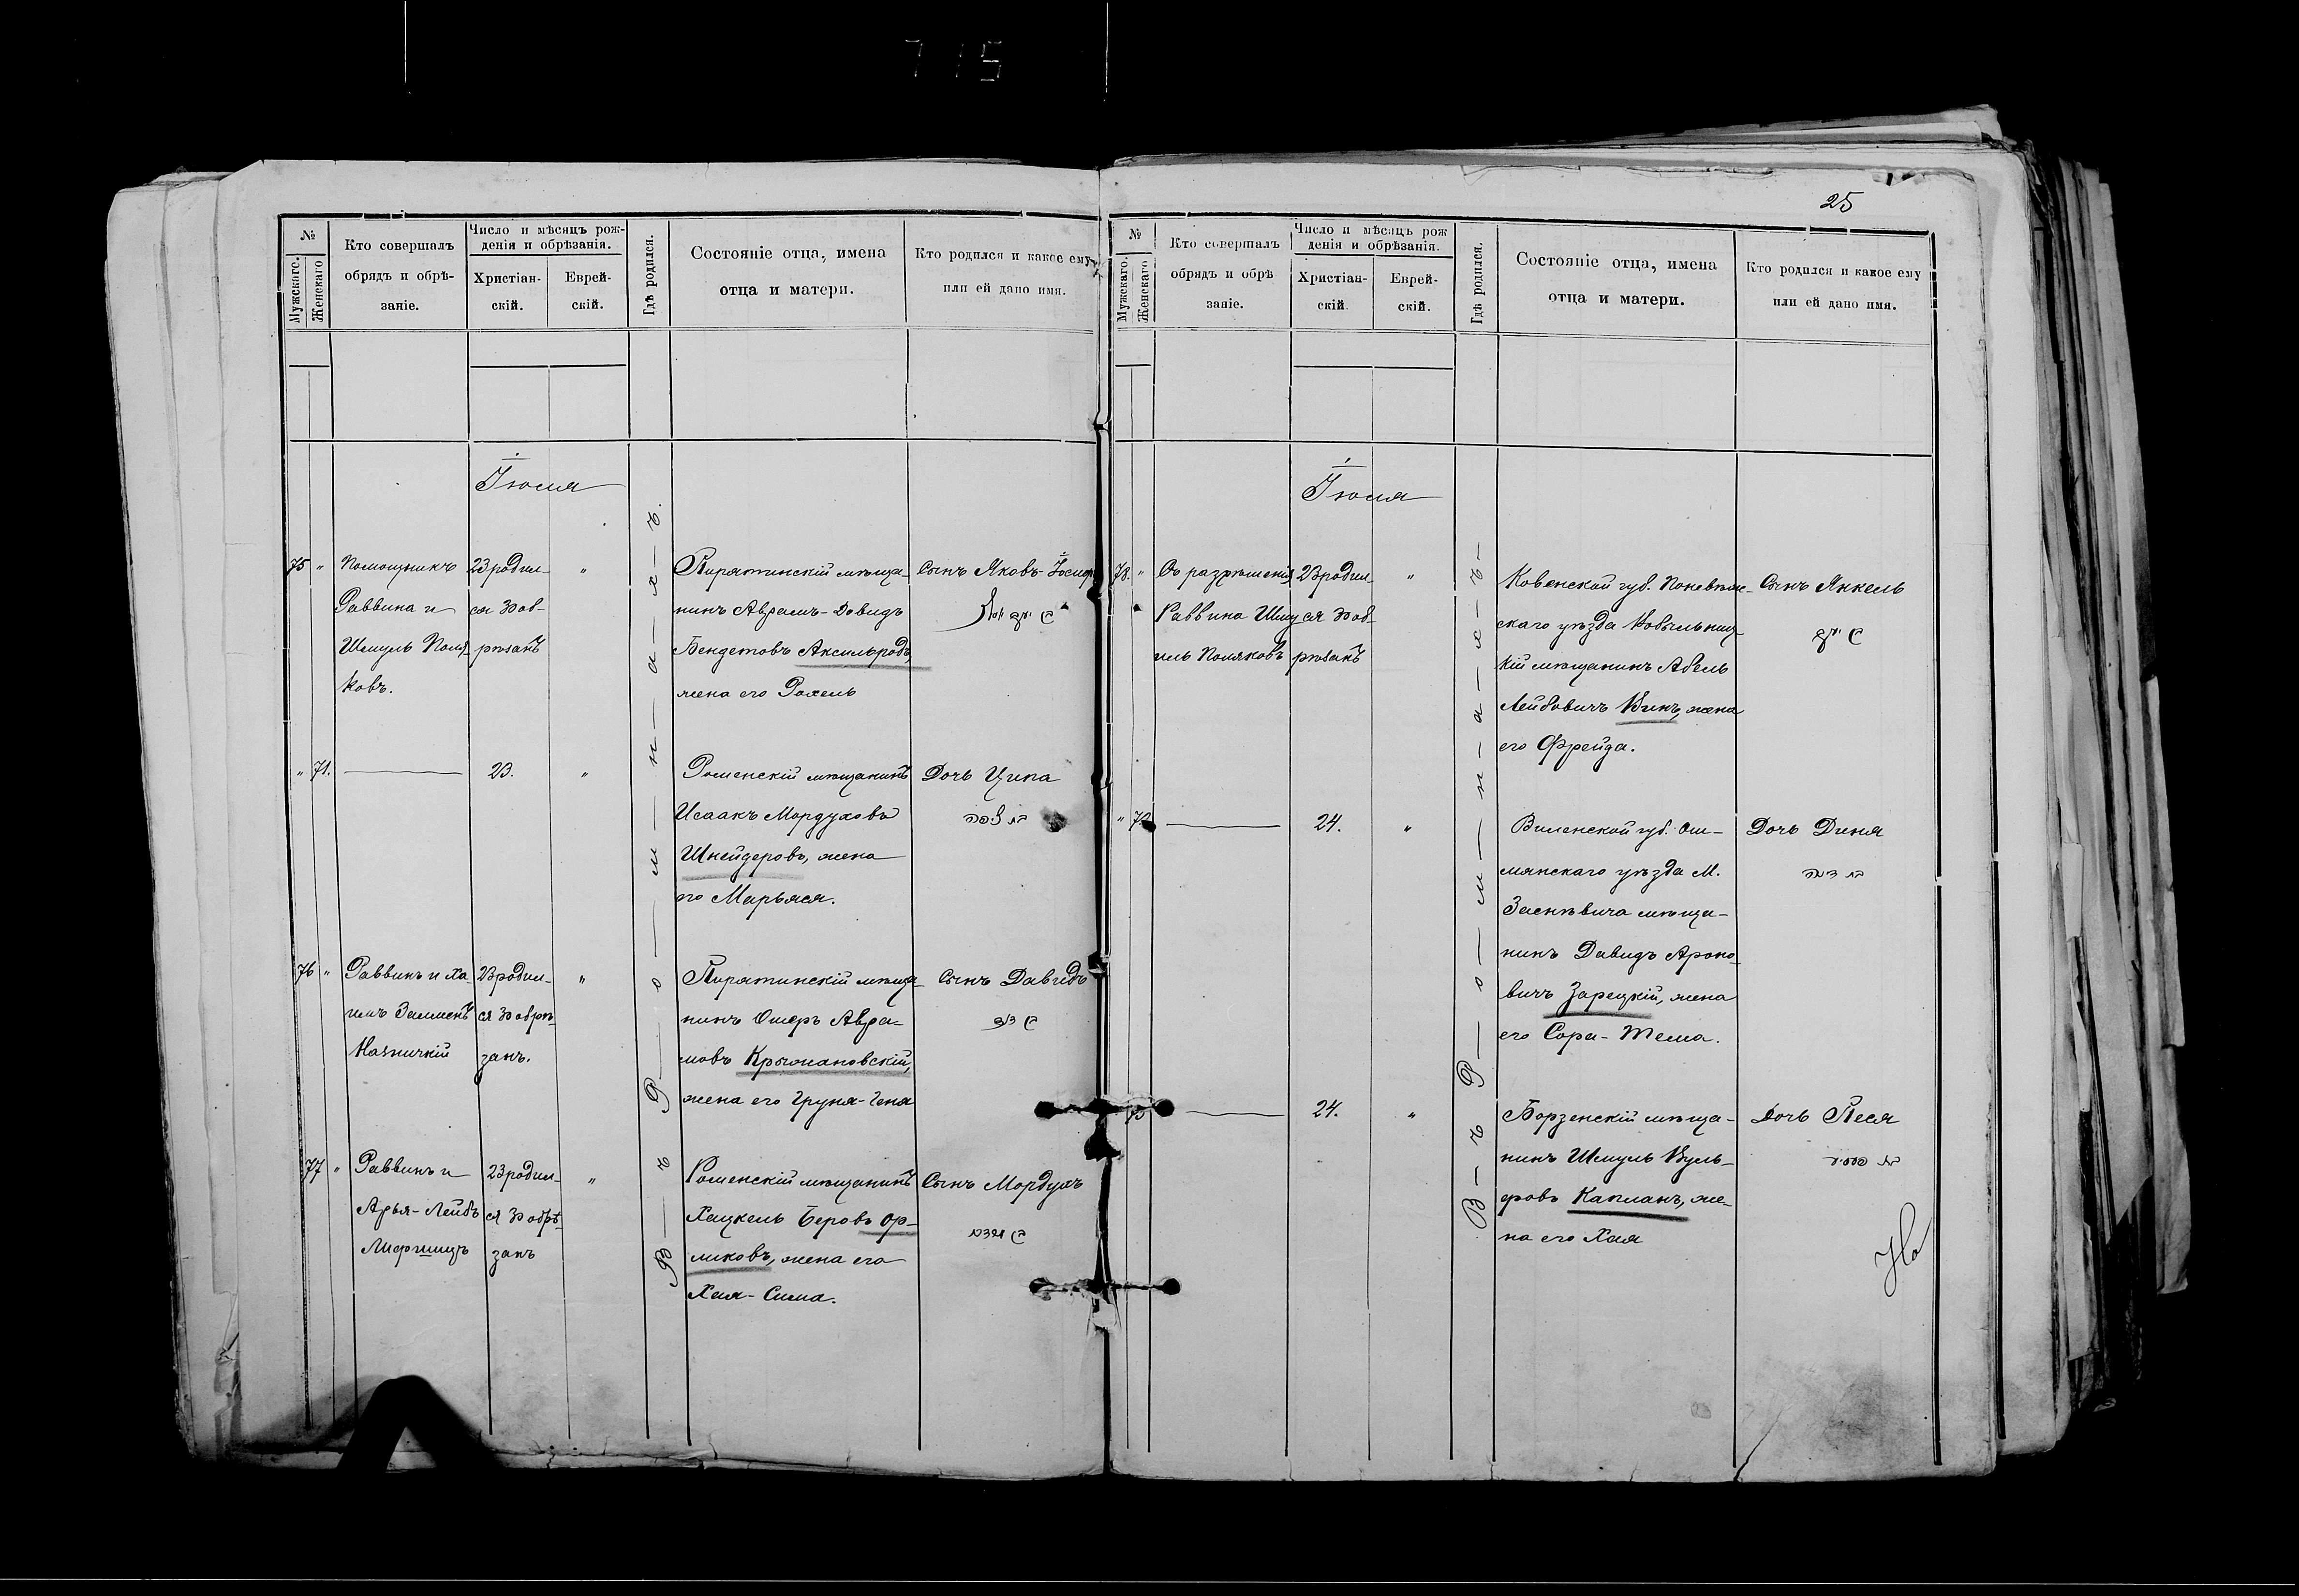 715
25
№
Мужскаго.
Женскаго
Кто совершалъ
обрядъ и обрѣ-
заніе.
Число и мѣсяцъ рож-
денія и обрѣзанія.
Христіан-
скій.
Еврей-
скій.
Гдѣ родился.
Состояніе отца, имена
отца и матери.
Кто родился и какое ему
или ей дано имя.
Іюля
75 " Помощникъ
Раввина и
Шмуль Поля
ковъ.
23 родил-
ся 30 об-
рѣзанъ
"
Пирятинскій мѣща-
нинъ Аврамъ-Довидъ
Бендетовъ Аксильродъ,
жена его Рохель
Сынъ Яковъ-Іосиф
" 71.
23.
"
Роменскій мѣщанинъ
Исаакъ Мордуховъ
Шнейдеровъ, жена
его Марьяся.
Дочь Ципа
76 " Раввинъ и Ха-
имъ Залменъ
23 родил-
ся 30 обрѣ-
занъ.
"
Пирятинскій мѣща-
нинъ Ошеръ Авра-
мовъ Крыжановскій,
жена его Груня-Геня
Сынъ Давидъ
77 " Раввинъ и
Арья-Лейбъ
23 родил-
ся 30 обрѣ-
занъ
"
Роменскій мѣщанинъ
Хацкель Беровъ Ор-
ликовъ, жена его
Хая-Сима.
Сынъ Мордухъ
В-ъ Р-о-м-н-а-х-ъ.
№
Мужскаго.
Женскаго.
Кто совершалъ
обрядъ и обрѣ
заніе.
Число и мѣсяцъ рож
денія и обрѣзанія.
Христіан-
скій.
Еврей-
скій.
Гдѣ родился.
Состояніе отца, имена
отца и матери.
Кто родился и какое ему
или ей дано имя.
Іюля
78. " Съ разрѣшенія
Раввина Шму
иль Поляковъ
23 родил-
ся 30 об-
рѣзанъ
"
Ковенской губ. Поневѣж-
скаго уѣзда
кій мѣщанинъ Абель
Лейбовичъ Винъ, жена
его Фрейда.
Сынъ Янкель
" 72
24.
"
Виленской губ. Ош-
мянскаго уѣзда М.
мѣща-
нинъ Давидъ Ароно-
вичъ Зарецкій, жена
его Сора-Тема.
Дочь Диня
73
24.
"
Борзенскій мѣща-
нинъ Шмуль Вуль-
фовъ Капланъ, же-
на его Хая
Дочь Песя
В-ъ Р-о-м-н-а-х-ъ-
На